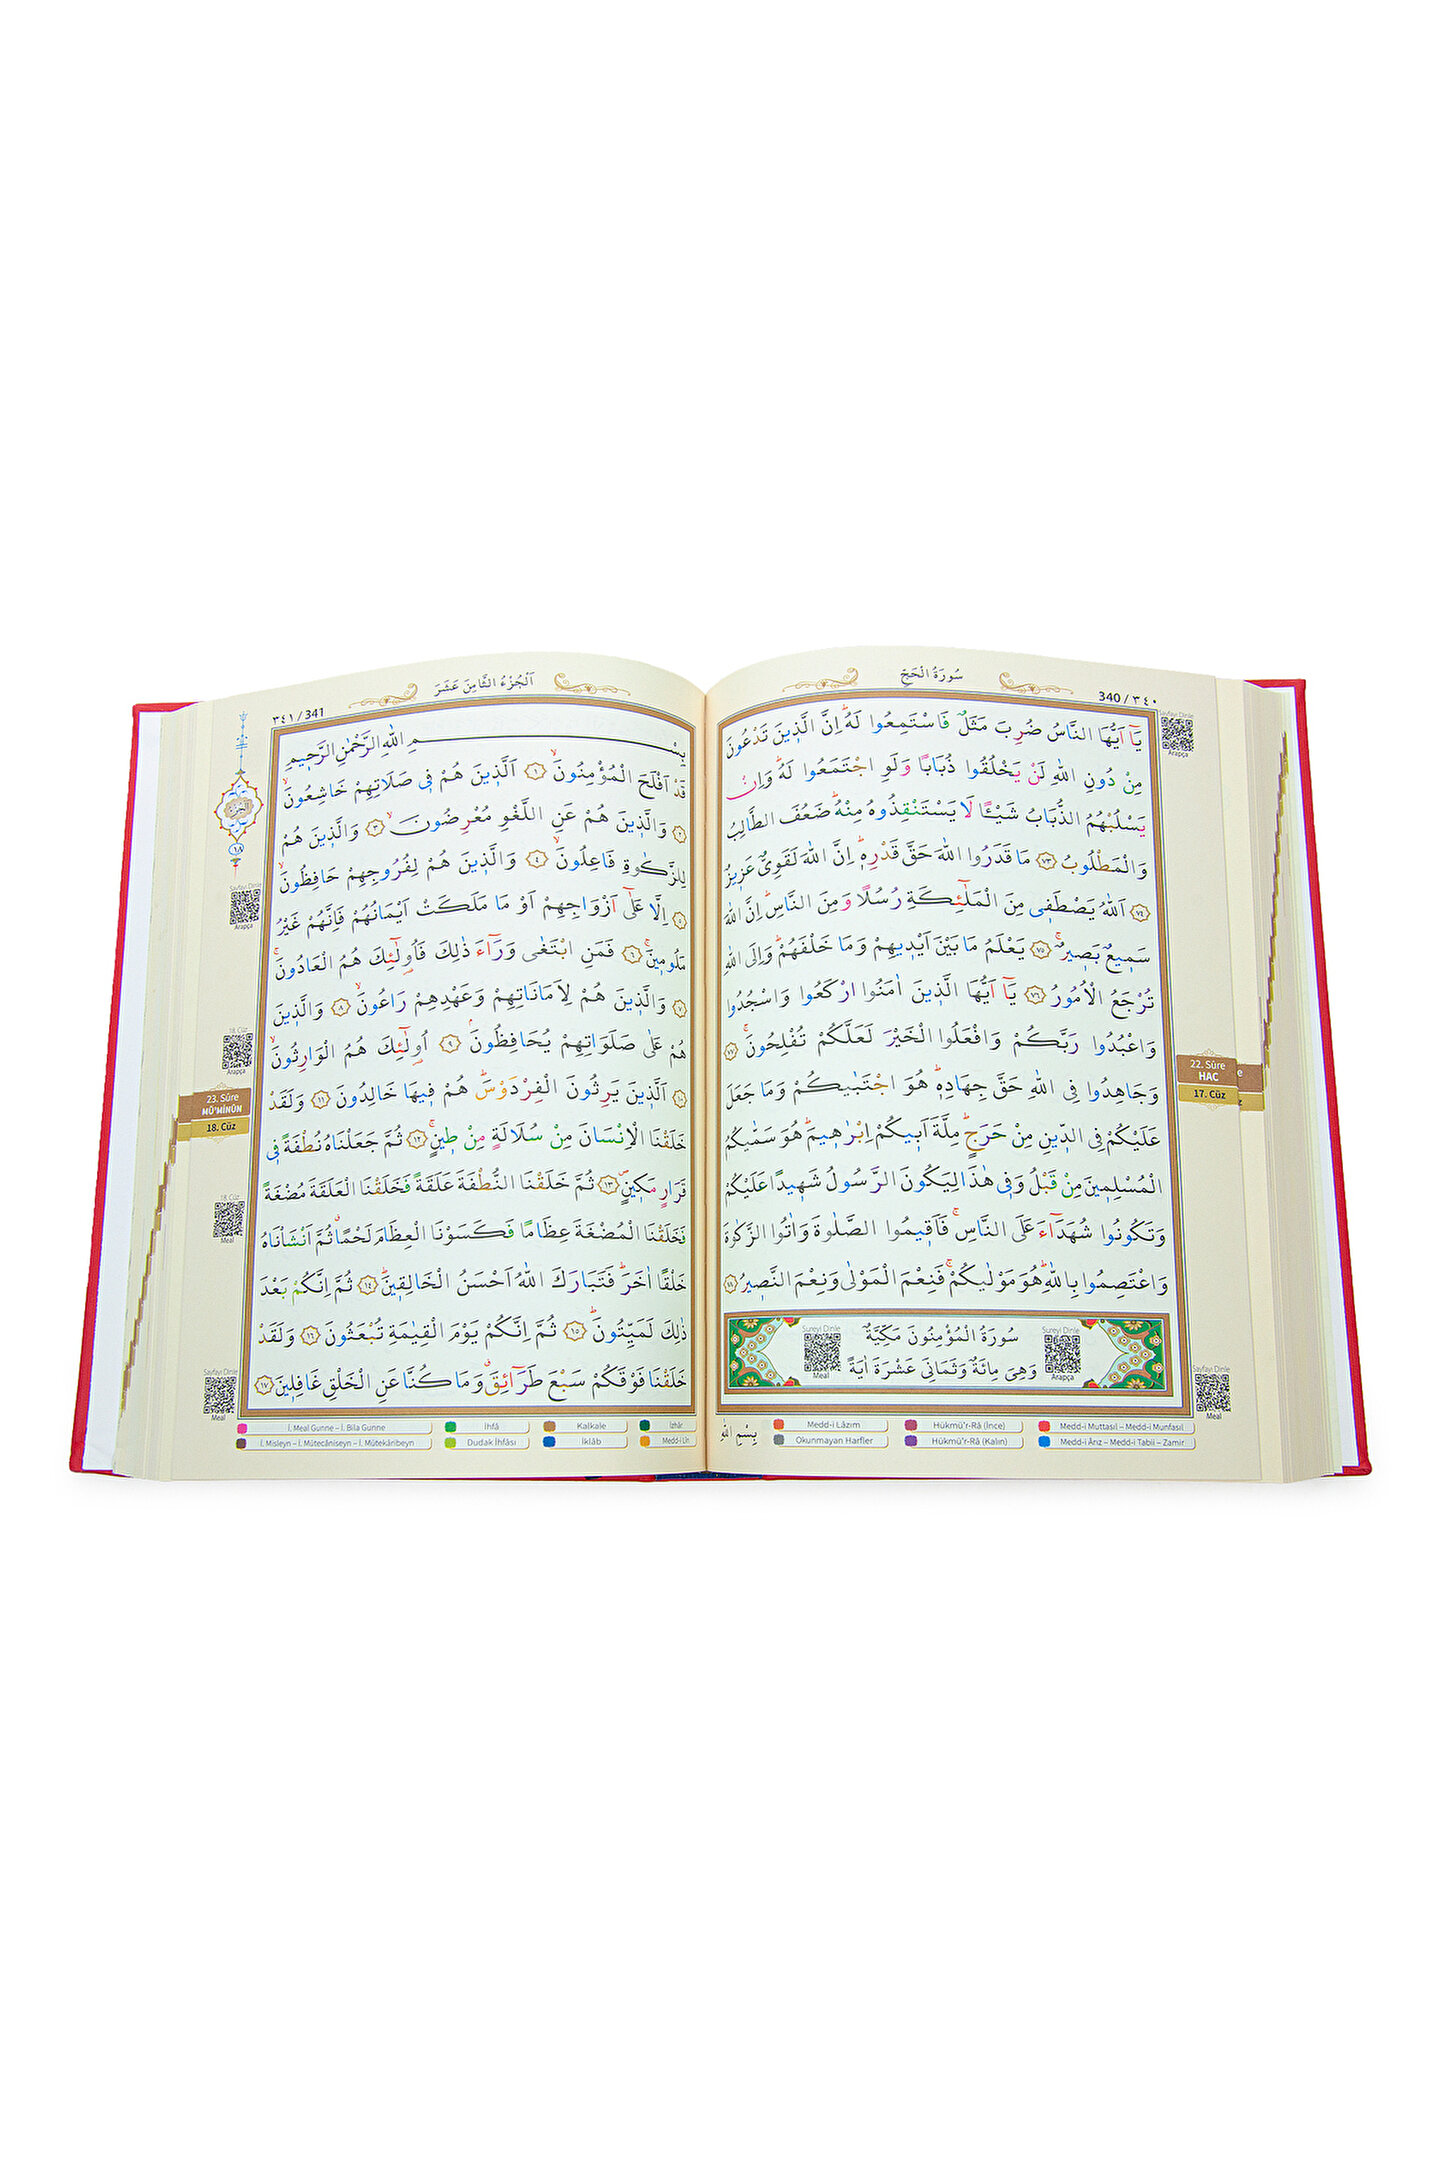 سُورَةُ الْحَجِّ
340 / ٣٤٠
يَٓا اَيُّهَا النَّاسُ ضُرِبَ مَثَلٌ فَاسْتَمِعُوا لَهُۜ اِنَّ الَّذ۪ينَ تَدْعُونَ
مِنْ دُونِ اللّٰهِ لَنْ يَخْلُقُوا ذُبَابًا وَلَوِ اجْتَمَعُوا لَهُۜ وَاِنْ
يَسْلُبْهُمُ الذُّبَابُ شَيْـًٔا لَا يَسْتَنْقِذُوهُ مِنْهُۜ ضَعُفَ الطَّالِبُ
وَالْمَطْلُوبُ ﴿٧٣﴾ مَا قَدَرُوا اللّٰهَ حَقَّ قَدْرِه۪ۜ اِنَّ اللّٰهَ لَقَوِيٌّ عَز۪يزٌ
﴿٧٤﴾ اَللّٰهُ يَصْطَف۪ي مِنَ الْمَلٰٓئِكَةِ رُسُلًا وَمِنَ النَّاسِۜ اِنَّ اللّٰهَ
سَم۪يعٌ بَص۪يرٌۚ ﴿٧٥﴾ يَعْلَمُ مَا بَيْنَ اَيْد۪يهِمْ وَمَا خَلْفَهُمْۜ وَاِلَى اللّٰهِ
تُرْجَعُ الْاُمُورُ ﴿٧٦﴾ يَٓا اَيُّهَا الَّذ۪ينَ اٰمَنُوا ارْكَعُوا وَاسْجُدُوا
وَاعْبُدُوا رَبَّكُمْ وَافْعَلُوا الْخَيْرَ لَعَلَّكُمْ تُفْلِحُونَۚ ﴿٧٧﴾
وَجَاهِدُوا فِي اللّٰهِ حَقَّ جِهَادِه۪ۜ هُوَ اجْتَبٰيكُمْ وَمَا جَعَلَ
عَلَيْكُمْ فِي الدّ۪ينِ مِنْ حَرَجٍۜ مِلَّةَ اَب۪يكُمْ اِبْرٰه۪يمَۜ هُوَ سَمّٰيكُمُ
الْمُسْلِم۪ينَ مِنْ قَبْلُ وَف۪ي هٰذَا لِيَكُونَ الرَّسُولُ شَه۪يدًا عَلَيْكُمْ
وَتَكُونُوا شُهَدَٓاءَ عَلَى النَّاسِۚ فَاَق۪يمُوا الصَّلٰوةَ وَاٰتُوا الزَّكٰوةَ
وَاعْتَصِمُوا بِاللّٰهِۜ هُوَ مَوْلٰيكُمْۚ فَنِعْمَ الْمَوْلٰى وَنِعْمَ النَّص۪يرُ ﴿٧٨﴾
سُورَةُ الْمُؤْمِنُونَ مَكِّيَّةٌ
وَهِيَ مِائَةٌ وَثَمَانِيَ عَشْرَةَ اٰيَةً
Sureyi Dinle
Meal
Sureyi Dinle
Arapça
بِسْمِ اللّٰهِ
Medd-i Lâzım
Hükmü'r-Râ (İnce)
Medd-i Muttasıl – Medd-i Munfasıl
Okunmayan Harfler
Hükmü'r-Râ (Kalın)
Medd-i Ârız – Medd-i Tabii – Zamir
Sayfayı Dinle
Arapça
22. Sûre
HAC
17. Cüz
Sayfayı Dinle
Meal
اَلْجُزْءُ الثَّامِنَ عَشَرَ
٣٤١ / 341
بِسْمِ اللّٰهِ الرَّحْمٰنِ الرَّح۪يمِ
قَدْ اَفْلَحَ الْمُؤْمِنُونَۙ ﴿١﴾ اَلَّذ۪ينَ هُمْ ف۪ي صَلَاتِهِمْ خَاشِعُونَۙ
﴿٢﴾ وَالَّذ۪ينَ هُمْ عَنِ اللَّغْوِ مُعْرِضُونَۙ ﴿٣﴾ وَالَّذ۪ينَ هُمْ
لِلزَّكٰوةِ فَاعِلُونَۙ ﴿٤﴾ وَالَّذ۪ينَ هُمْ لِفُرُوجِهِمْ حَافِظُونَۙ
﴿٥﴾ اِلَّا عَلٰٓى اَزْوَاجِهِمْ اَوْ مَا مَلَكَتْ اَيْمَانُهُمْ فَاِنَّهُمْ غَيْرُ
مَلُوم۪ينَۚ ﴿٦﴾ فَمَنِ ابْتَغٰى وَرَٓاءَ ذٰلِكَ فَاُو۬لٰٓئِكَ هُمُ الْعَادُونَۚ
﴿٧﴾ وَالَّذ۪ينَ هُمْ لِاَمَانَاتِهِمْ وَعَهْدِهِمْ رَاعُونَۙ ﴿٨﴾ وَالَّذ۪ينَ
هُمْ عَلٰى صَلَوَاتِهِمْ يُحَافِظُونَۢ ﴿٩﴾ اُو۬لٰٓئِكَ هُمُ الْوَارِثُونَۙ
﴿١٠﴾ اَلَّذ۪ينَ يَرِثُونَ الْفِرْدَوْسَۜ هُمْ ف۪يهَا خَالِدُونَ ﴿١١﴾ وَلَقَدْ
خَلَقْنَا الْاِنْسَانَ مِنْ سُلَالَةٍ مِنْ ط۪ينٍۚ ﴿١٢﴾ ثُمَّ جَعَلْنَاهُ نُطْفَةً ف۪ي
قَرَارٍ مَك۪ينٍۖ ﴿١٣﴾ ثُمَّ خَلَقْنَا النُّطْفَةَ عَلَقَةً فَخَلَقْنَا الْعَلَقَةَ مُضْغَةً
فَخَلَقْنَا الْمُضْغَةَ عِظَامًا فَكَسَوْنَا الْعِظَامَ لَحْمًاۗ ثُمَّ اَنْشَأْنَاهُ
خَلْقًا اٰخَرَۜ فَتَبَارَكَ اللّٰهُ اَحْسَنُ الْخَالِق۪ينَۜ ﴿١٤﴾ ثُمَّ اِنَّكُمْ بَعْدَ
ذٰلِكَ لَمَيِّتُونَۜ ﴿١٥﴾ ثُمَّ اِنَّكُمْ يَوْمَ الْقِيٰمَةِ تُبْعَثُونَ ﴿١٦﴾ وَلَقَدْ
خَلَقْنَا فَوْقَكُمْ سَبْعَ طَرَٓائِقَۗ وَمَا كُنَّا عَنِ الْخَلْقِ غَافِل۪ينَ ﴿١٧﴾
İ. Meal Gunne – İ. Bila Gunne
İhfâ
Kalkale
İzhâr
İ. Misleyn – İ. Mütecâniseyn – İ. Mütekâribeyn
Dudak İhfâsı
Iklâb
Medd-i Lîn
١٨
Sayfayı Dinle
Arapça
18. Cüz
Arapça
23. Sûre
MÜ'MİNÛN
18. Cüz
18. Cüz
Meal
Sayfayı Dinle
Meal